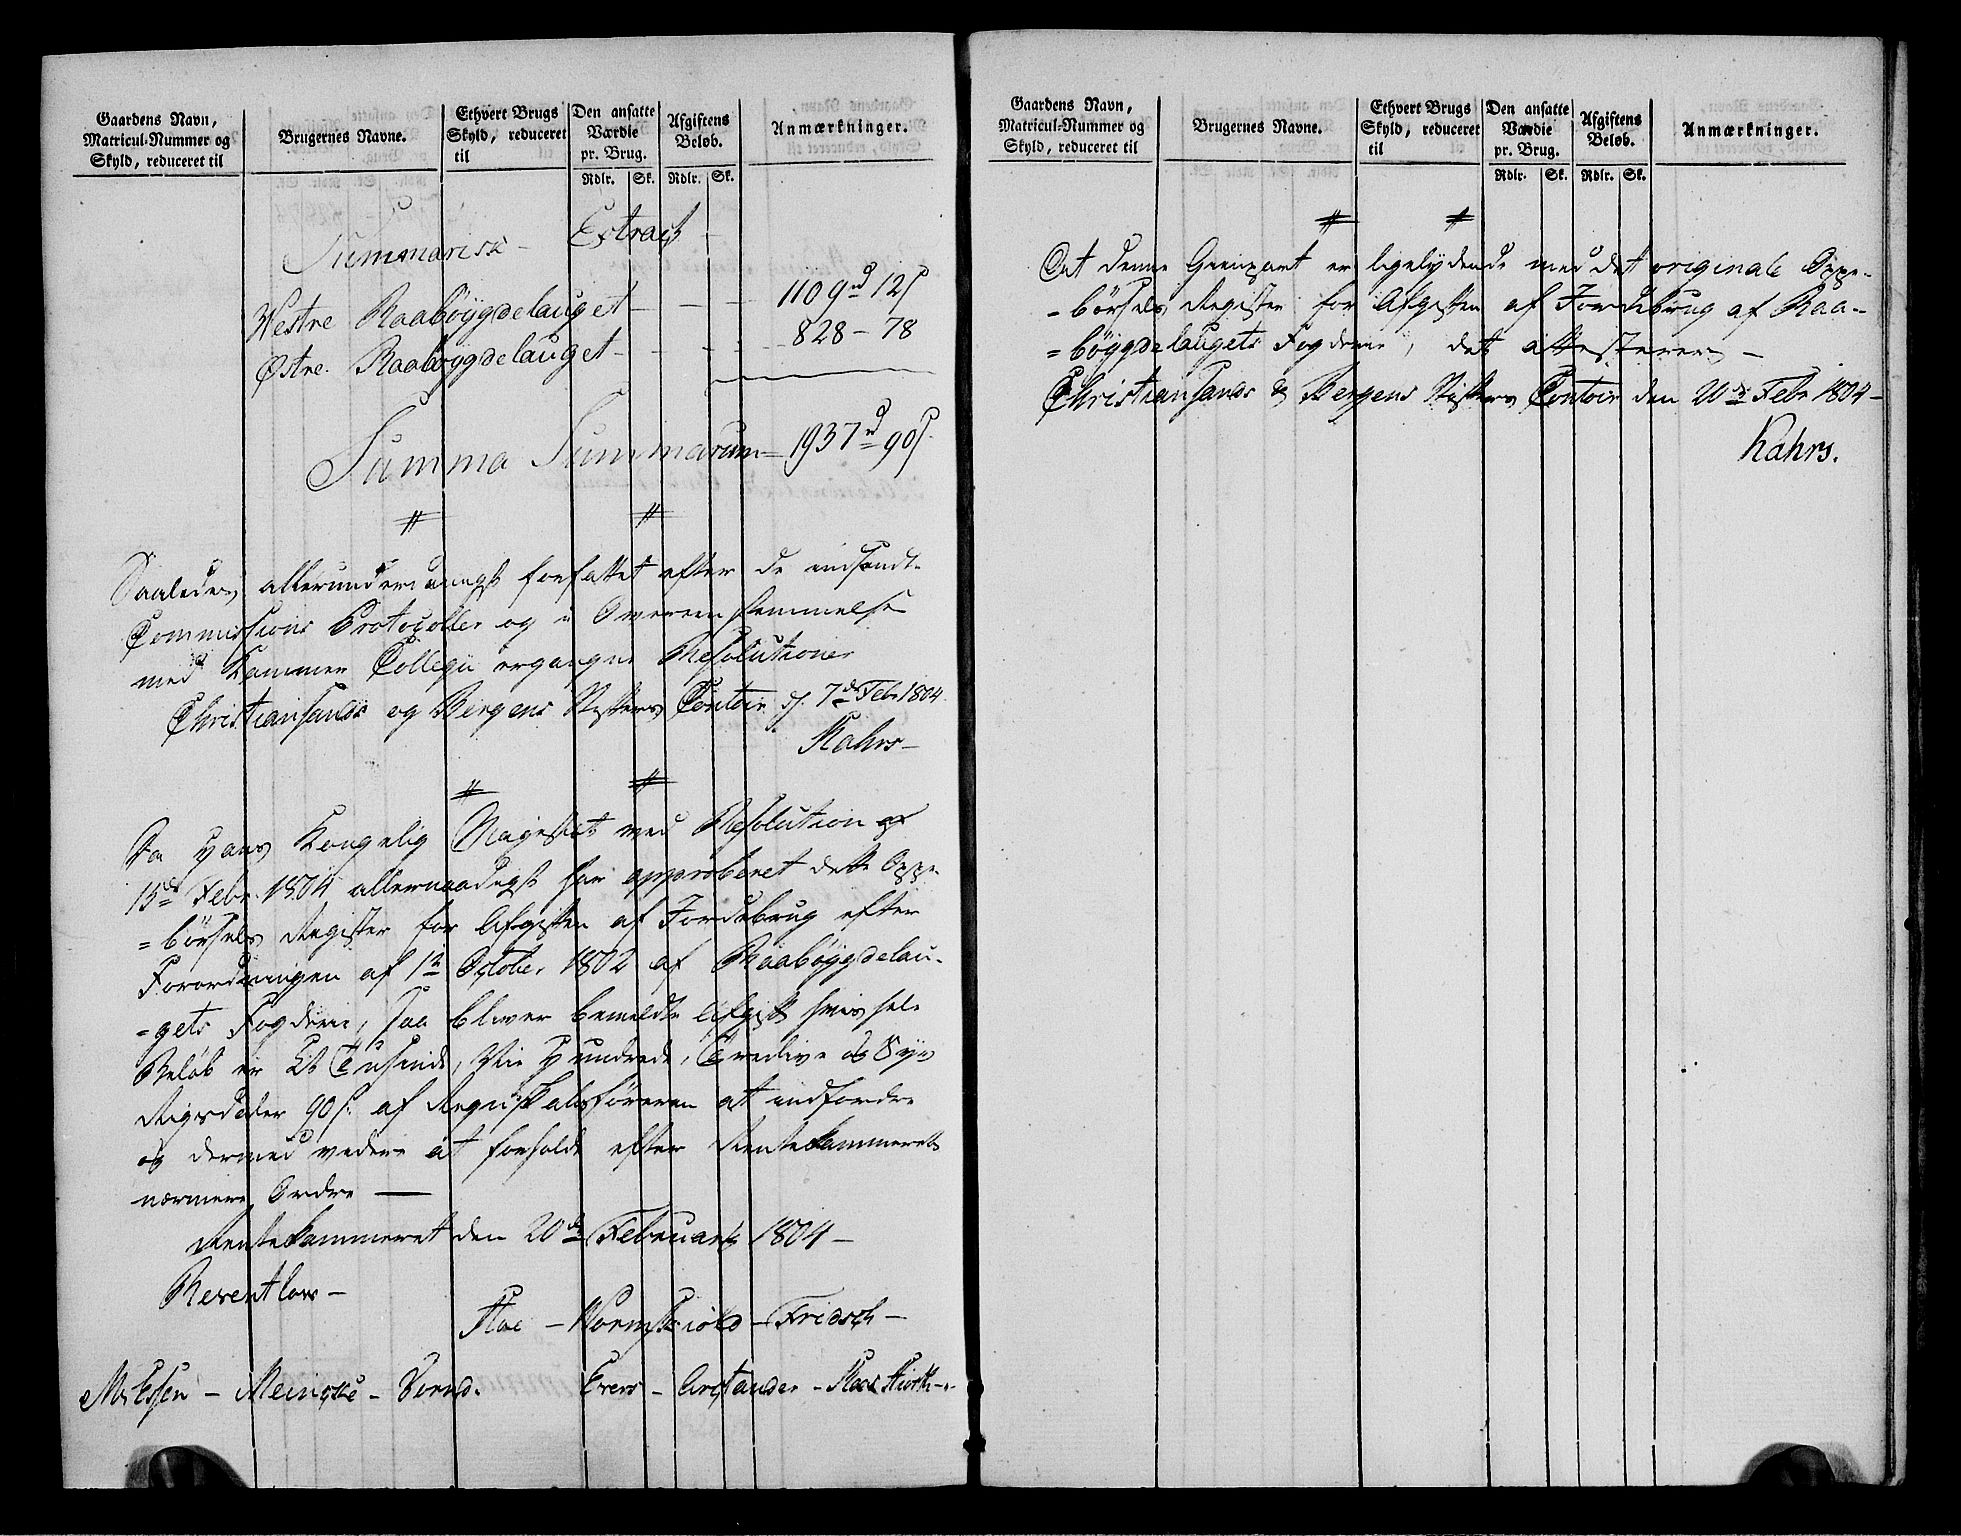 Gaardens Navn,
Matricul-Nummer og
Skyld, reduceret til
Brugernes Navne.
Ethvert Brugs
Skyld, reduceret
til
Den ansatte
Værdie
pr. Brug.
Rdlr. Sk.
Afgiftens
Beløb.
Rdlr. Sk.
Anmærkninger.
Summarisk Extract
Westre Raabøygdelauget - - - 1109 rd 12 s
Østre Raabøygdelauget - - - 828 - 78
Summa Summarum = 1937 rd 90 s
Saaledes allerunderdanigst forfattet efter de indsendte
Commissions Protocoller og i Overeensstemmelse
med Kammer Collegii ergangne Resolutioner
Christiansands og Bergens Stifters Contoir d. 7de Febr 1804
Kahrs -
Da Hans Kongelig Majestet ved Resolution af
15de Febr. 1804 allernaadigst har approberet dette Oppe-
=børsels Register for Afgiften af Jordebrug efter
Forordningen af 1te October 1802 af Raabøygdelau-
=gets Fogderie, saa bliver bemeldte Afgift hvis hele
Beløb er Et Tusinde, Nie Hundrede, Tredive og Syv
Rigsdaler 90 s. af Regnskabsføreren at indfordre
og dermed videre at forholde efter Rentekammerets
nærmere Ordre —
Rentekammeret den 20de Februarii 1804 -
Reventlow -
Hoe - Wormskiold - Fridsch -
- Meincke - Evers -
Gaardens Navn,
Matricul-Nummer og
Skyld, reduceret til
Brugernes Navne.
Ethvert Brugs
Skyld, reduceret
til
Den ansatte
Værdie
pr. Brug.
Rdlr. Sk.
Afgiftens
Beløb.
Rdlr. Sk.
Anmærkninger.
At denne Gienpart er ligelydende med det originale Oppe-
=børsels Register for Afgiften af Jordebrug af Raa-
=bøygdelaugets Fogderie, det attesterer -
Christiansands & Bergens Stifters Contoir den 20de Febr 1804 -
Kahrs.